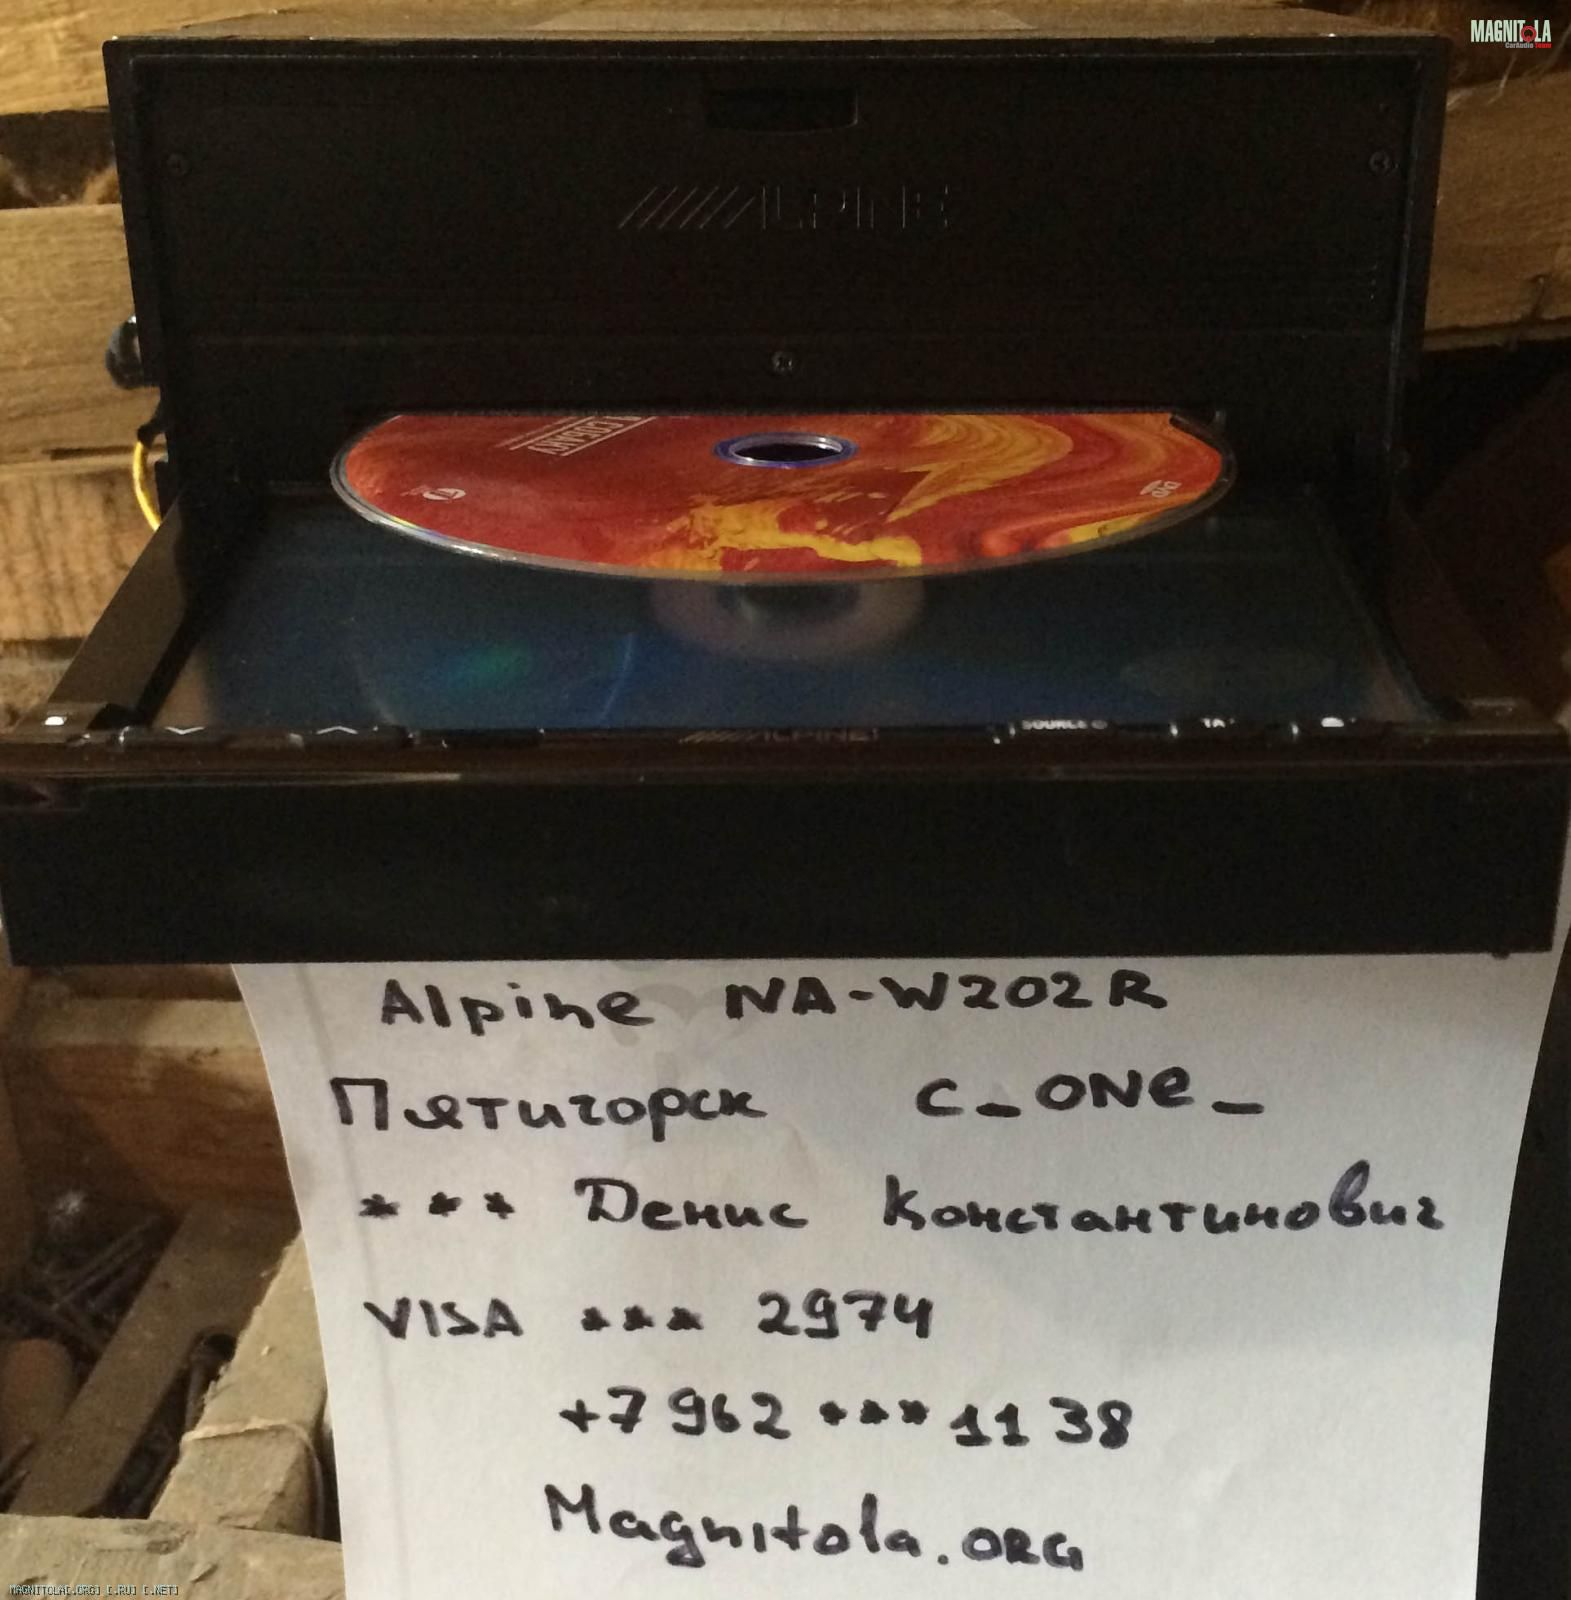 MAGNITOLA
CarAudio Team
ALPINE
DVD
SOURCE
TA
ALPINE
Alpine NA-W202R
Пятигорск C_ONe_
*** Денис Константинович
VISA *** 2974
+7 962 *** 11 38
Magnitola.ORG
MAGNITOLA[.ORG] [.RU] [.NET]